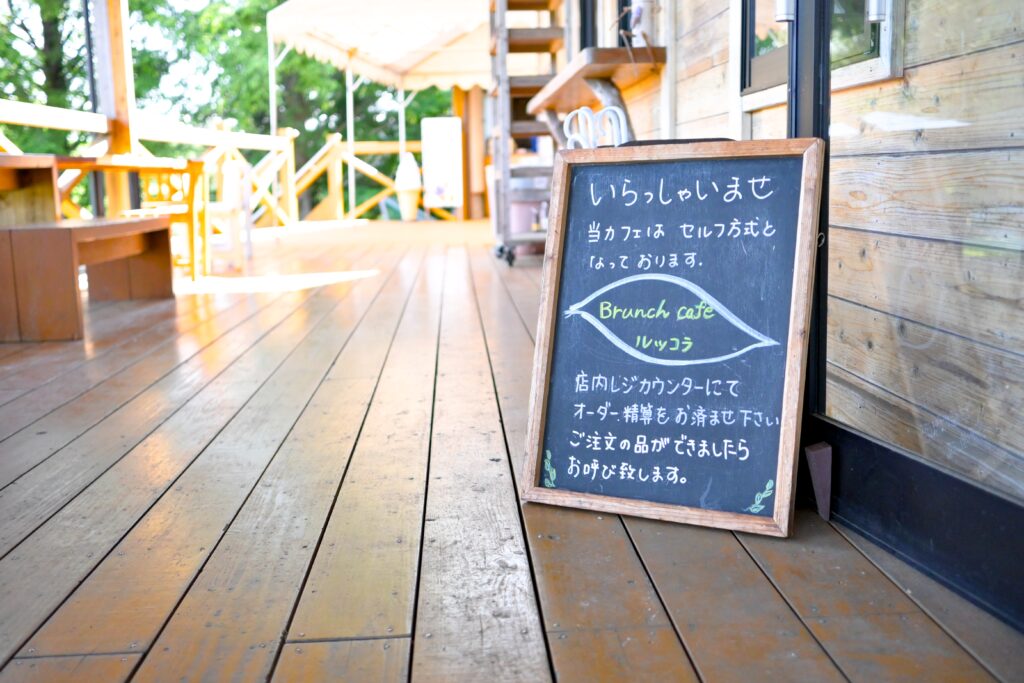 いらっしゃいませ
当カフェは セルフ方式と
なって おります.
Brunch café
ルッコラ
店内レジカウンターにて
オーダー.精算を お済ませ下さい
ご注文の品ができましたら
お呼び致します。